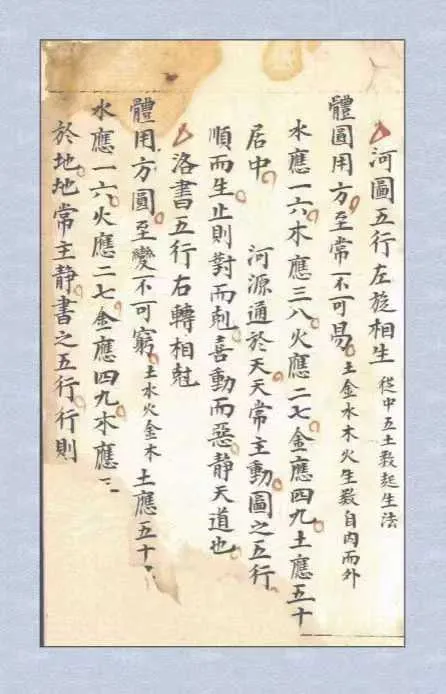 河圖五行左旋相生 從中五土數起生法
體圓用方至常不可易 土金水木火生數自內而外
水應一六木應三八火應二七金應四九土應五十
居中 河源通於天天常主動圖之五行
順而生止則對而剋喜動而惡静天道也
洛書五行右轉相尅
體用方圓至變不可窮 土水火金木 土應五十
水應一六火應二七金應四九木應三
於地地常主静書之五行行則